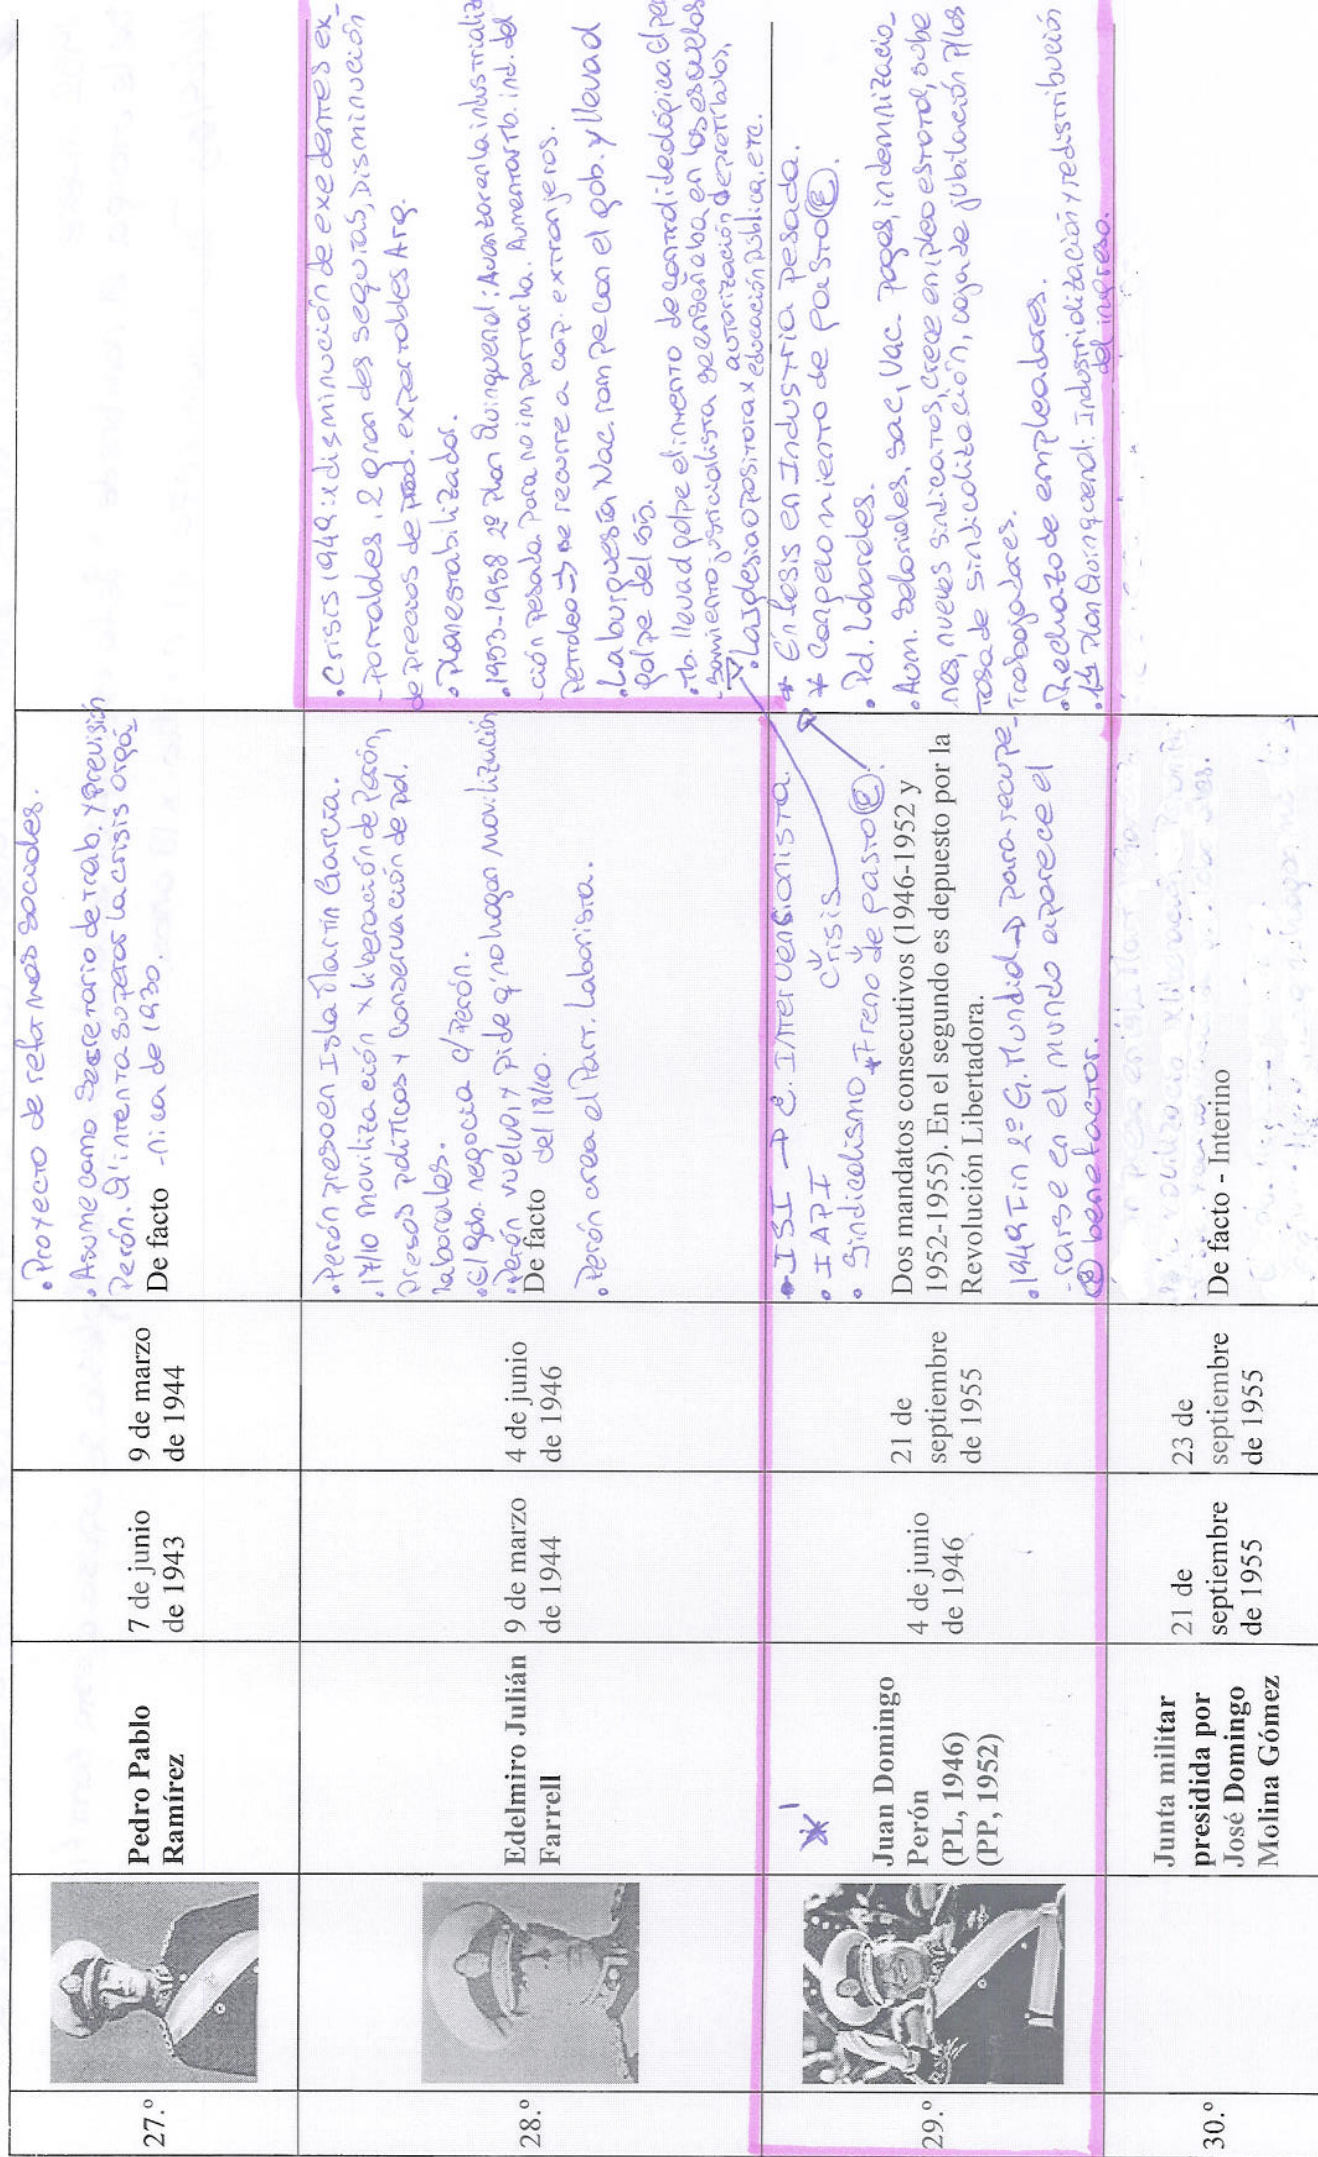 27.º
Pedro Pablo
Ramírez
7 de junio
de 1943
9 de marzo
de 1944
• Proyecto de reformas sociales.
• Asume como Secretario de trab. y previsión
Perón. Q' intenta superar la crisis orgá-
De facto -nica de 1930.
28.º
Edelmiro Julián
Farrell
9 de marzo
de 1944
4 de junio
de 1946
• Perón preso en Isla Martín García.
• 17/10 movilización x liberación de Perón,
presos políticos y conservación de pol.
laborales.
• El gob. negocia c/ Perón.
• Perón vuelve, y pide q' no hagan movilización
De facto del 18/10.
• Perón crea el Part. Laborista.
• Crisis 1949: x disminución de exedentes ex-
-portables, 2 grandes sequías, disminución
de precios de prod. exportables Arg.
• Plan estabilizador.
• 1953-1958 2º Plan Quinquenal: Avanzar en la industrializa
-ción pesada para no importarla. Aumentar tb. ind. del
petróleo → se recurre a cap. extranjeros.
• La burguesía Nac. rompe con el gob. y lleva al
golpe del 55.
• Tb. lleva al golpe el intento de control ideológico. El pen
-samiento justicialista se enseñaba en las escuelas
autorización de prostíbulos,
• La Iglesia opositora x educación pública, etc.
29.º
Juan Domingo
Perón
(PL, 1946)
(PP, 1952)
4 de junio
de 1946
21 de
septiembre
de 1955
• ISI → E. Intervencionista.
• IAPI crisis
• Sindicalismo * Freno de pasto (E)
Dos mandatos consecutivos (1946-1952 y
1952-1955). En el segundo es depuesto por la
Revolución Libertadora.
• 1949 Fin 2º G. Mundial → para recupe-
-rarse en el mundo aparece el
(E) benefactor.
* Énfasis en Industria pesada.
* Congelamiento de pasto (E).
• Pol. Laborales.
• Aum. salariales, sac, vac. pagas, indemnizacio-
nes, nuevos sindicatos, crece empleo estatal, sube
tasa de sindicalización, caja de jubilación p/ los
trabajadores.
• Rechazo de empleadores.
• 1º Plan Quinquenal: Industrialización y redistribución
del ingreso.
30.º
Junta militar
presidida por
José Domingo
Molina Gómez
21 de
septiembre
de 1955
23 de
septiembre
de 1955
De facto - Interino